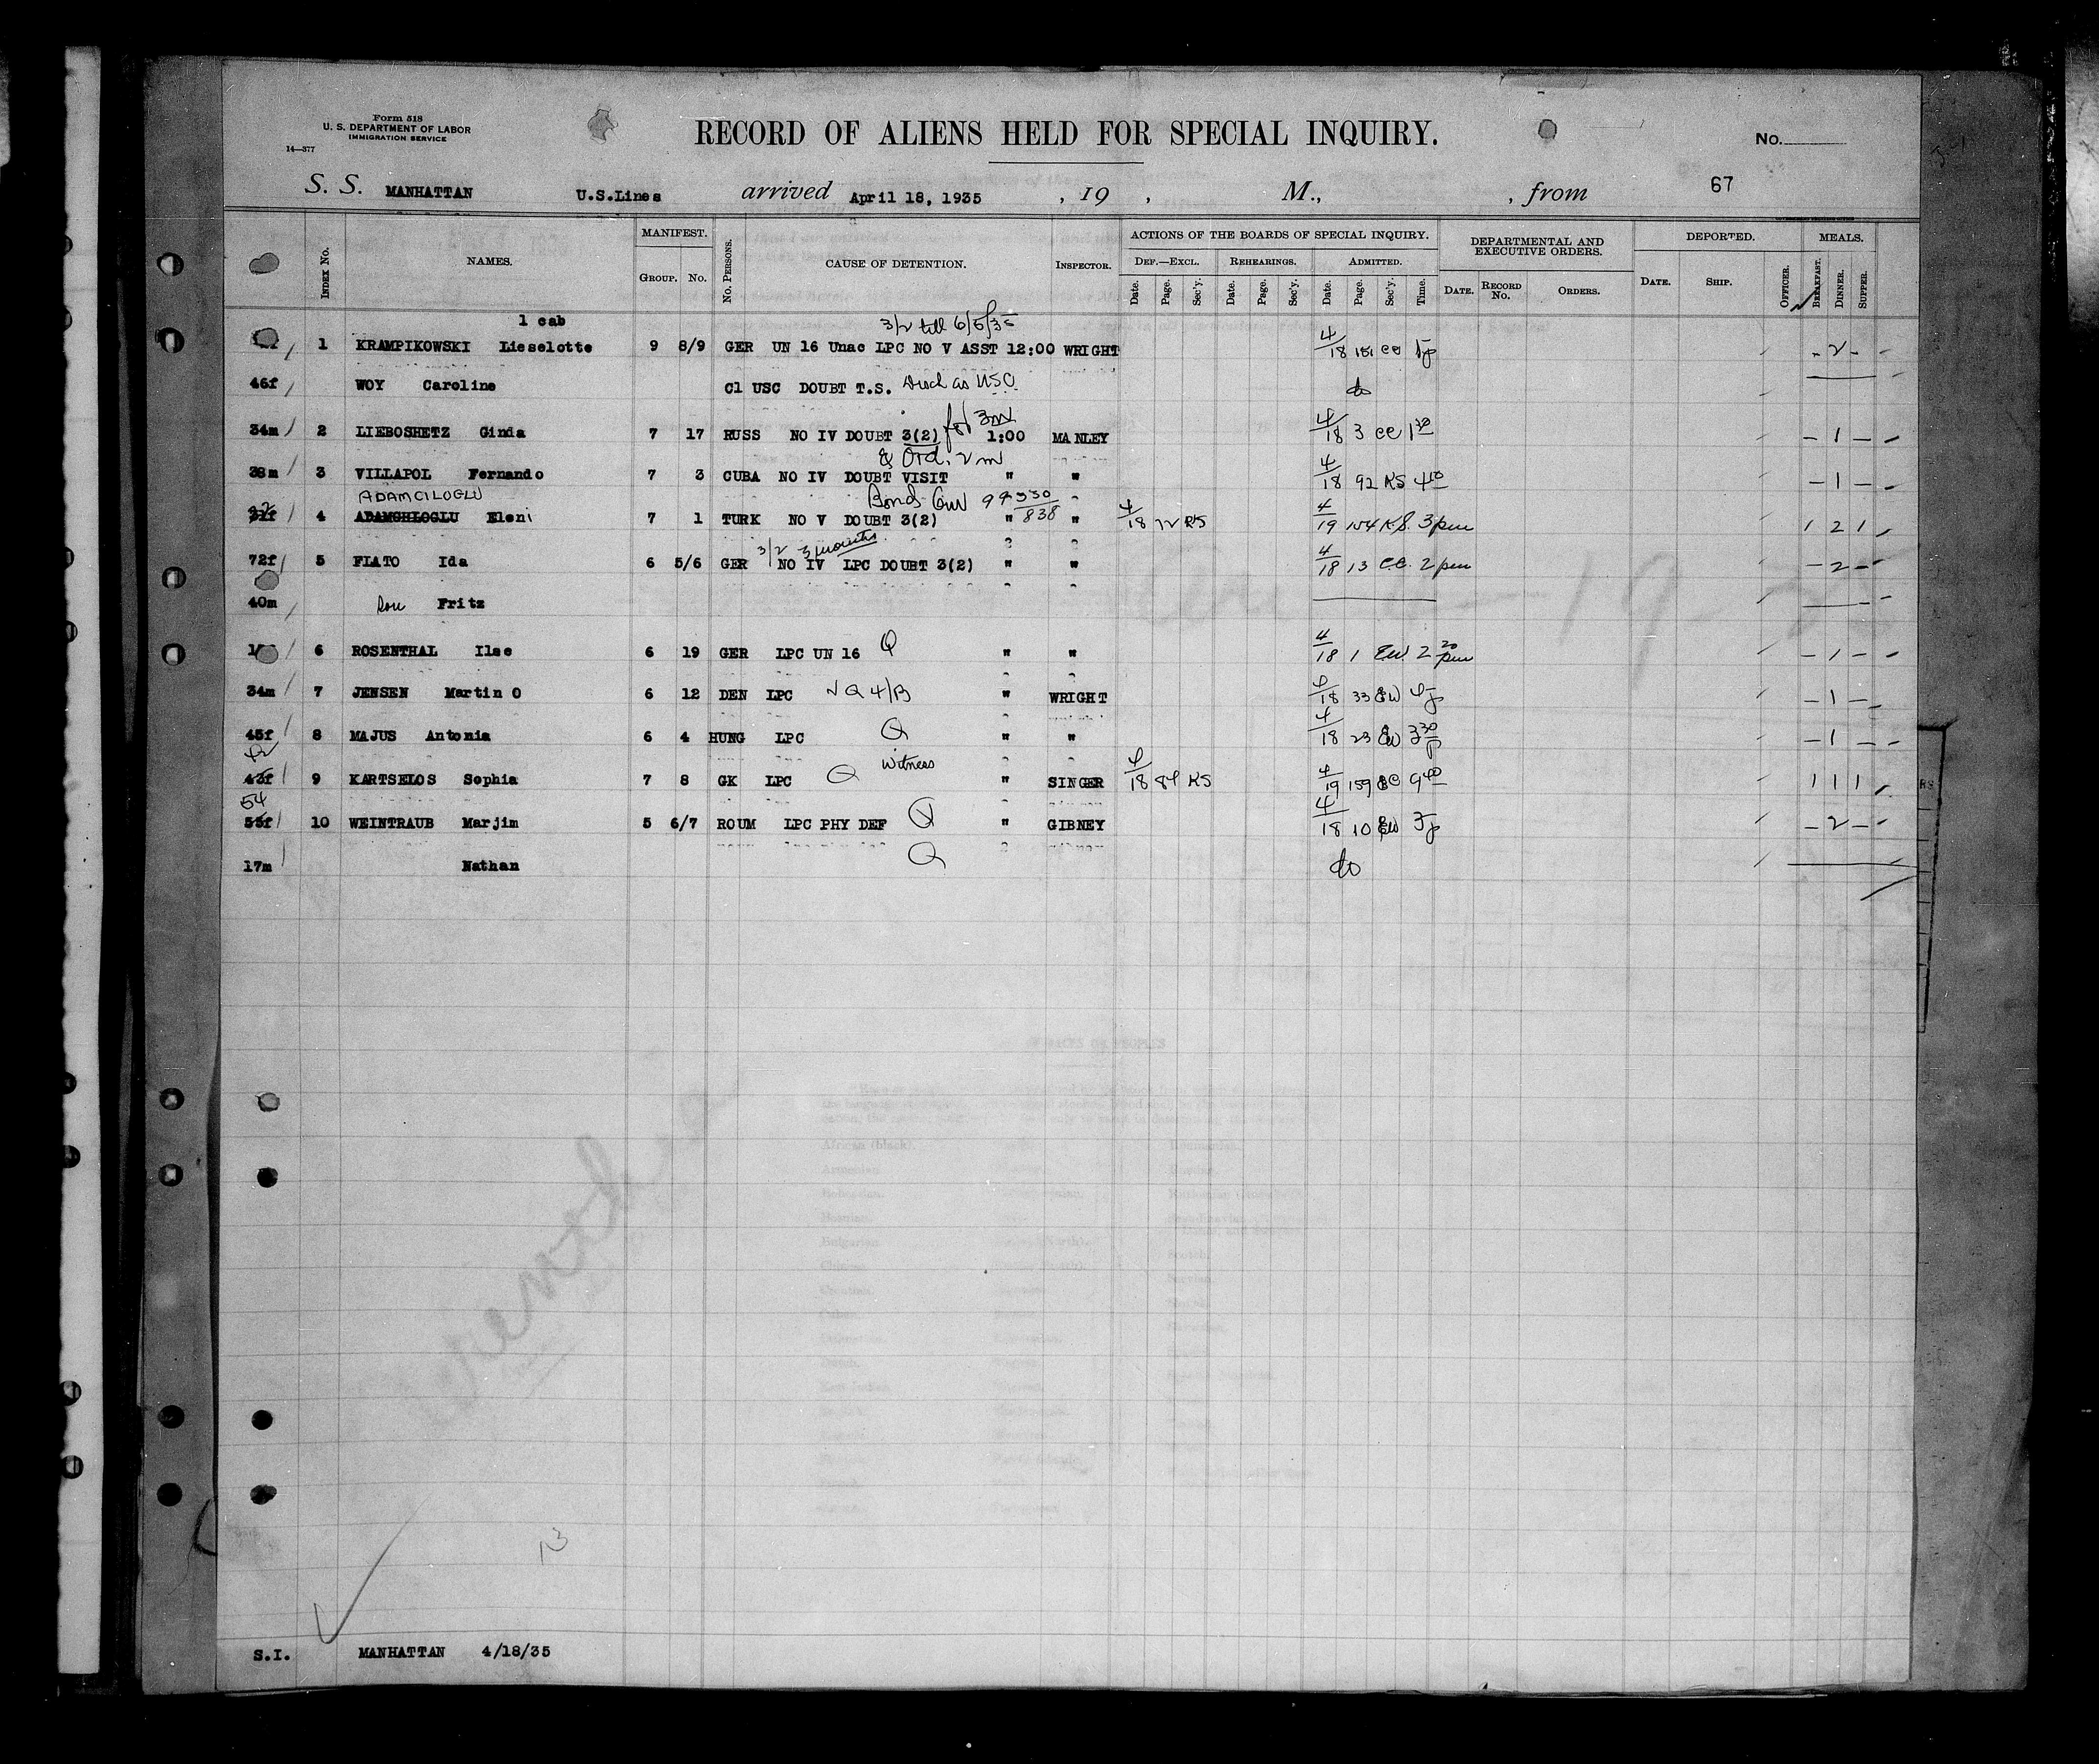 Form 518
U. S. DEPARTMENT OF LABOR
IMMIGRATION SERVICE
14—377
RECORD OF ALIENS HELD FOR SPECIAL INQUIRY.
No.
S. S. MANHATTAN U.S.Lines arrived April 18, 1935 , 19 , M., , from 67
INDEX No. NAMES. MANIFEST. GROUP. No. No. PERSONS. CAUSE OF DETENTION. INSPECTOR. ACTIONS OF THE BOARDS OF SPECIAL INQUIRY. DEF.—EXCL. Date. Page. Sec'y. REHEARINGS. Date. Page. Sec'y. ADMITTED. Date. Page. Sec'y. Time. DEPARTMENTAL AND EXECUTIVE ORDERS. DATE. RECORD No. ORDERS. DEPORTED. DATE. SHIP. OFFICER. MEALS. BREAKFAST. DINNER. SUPPER.
1 cab 3/2 till 6/5/35
1 KRAMPIKOWSKI Lieselotte 9 8/9 GER UN 16 Unac LPC NO V ASST 12:00 WRIGHT 4/18 - 2 -
46f WOY Caroline Cl USC DOUBT T.S. as USC. do
for 3m
34m 2 LIEBOSHETZ Ginda 7 17 RUSS NO IV DOUBT 3(2) 1:00 MANLEY 4/18 3 CC 1 30 - 1 - -
& Ord. 2 m
38m 3 VILLAPOL Fernando 7 3 CUBA NO IV DOUBT VISIT " " 4/18 92 KS 4 40 - 1 - -
ADAMCILOGLU Bond
32 31f 4 ADAMGHLOGLU Eleni 7 1 TURK NO V DOUBT 3(2) " 838 " 4/18 12 KS 4/19 154 KS. 3 pm 1 2 1
3/2 3 months
72f 5 FLATO Ida 6 5/6 GER NO IV LPC DOUBT 3(2) " " 4/18 13 C.C. 2 pm - 2 -
40m Fritz
6 ROSENTHAL Ilse 6 19 GER LPC UN 16 Q " " 4/18 1 EW 2 20 pm - 1 - -
34m 7 JENSEN Martin O 6 12 DEN LPC " WRIGHT 4/18 33 EW - 1 -
45f 8 MAJUS Antonia 6 4 HUNG LPC Q " " 4/18 23 EW 3 30 p - 1 - -
42 Witness
43f 9 KARTSELOS Sophia 7 8 GK LPC Q " SINGER 4/18 84 KS 4/19 159 CC 9 40 1 1 1
54
55f 10 WEINTRAUB Marjim 5 6/7 ROUM LPC PHY DEF Q " GIBNEY 4/18 10 EW - 2 -
17m Nathan Q do
13
S.I. MANHATTAN 4/18/35